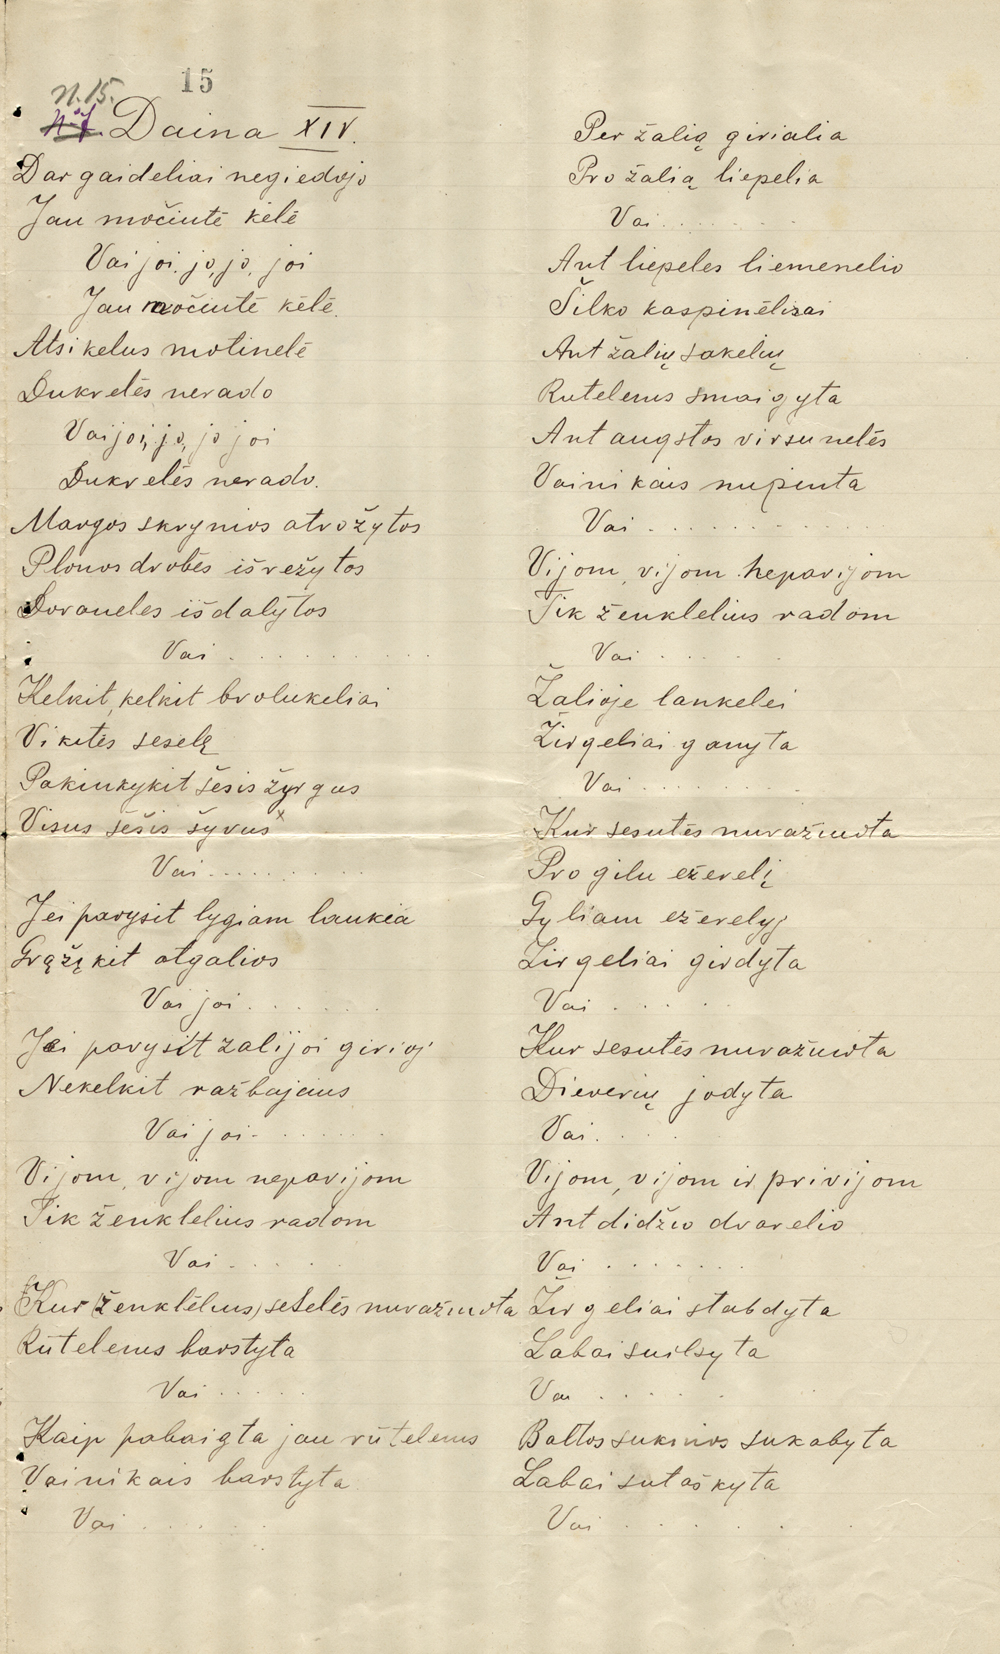 15
N. 15.
Daina XIV.
Dar gaideliai negiedojo
Jau močiutė kėlė
Vai joi, jo, jo, joi
Jau močiutė kėlė.
Atsikelus motinelė
Dukrelės nerado
Vai joi, jo, jo joi
Dukrelės nerado.
Margos skrynios atrožytos
Plonos drobės išrežytos
Dovaneles išdalytos
Vai . . . . . . . . . .
Kelkit, kelkit brolukeliai
Vikitės seselę
Pakinkykit šešis žyrgus
Visus šešis šyvus x
Vai . . . . . . . . .
Jei pavysit lygiam laukia
Grąžįkit atgalios
Vai joi . . . . . .
Jei pavysit zalijoi girioj
Nekelkit razbajaus
Vai joi . . . . . . .
Vijom, vijom nepavijom
Tik ženklelius radom
Vai . . . . .
Kur (ženklėlius) seselės nuvažiuota
Rūtelems barstyta
Vai . . . . .
Kaip pabaigta jau rūtelems
Vainikais barstyta
Vai . . . . .
Per žalią girialia
Pro žalią liepelia
Vai . . . . . .
Ant liepeles liemenelio
Šilko kaspinėlisai
Ant žalių šakelių
Rutelems smaigyta
Ant augstos virsunelės
Vainikais nupinta
Vai . . . . . . . . .
Vijom, vijom nepavijom
Tik ženklelius radom
Vai . . . . .
Žalioje lankelei
Žirgeliai ganyta
Vai . . . . . . . .
Kur sesutės nuvažiuota
Pro gilu ežerelį
Gyliam ežerelyj
Žirgeliai girdyta
Vai . . . . .
Kur sesutės nuvažiuota
Dieverių jodyta
Vai . . . .
Vijom, vijom ir privijom
Ant didžio dvarelio
Vai . . . . . . .
Žirgeliai stabdyta
Labai suilsyta
Vai . . . . .
Baltos sukinos sukabyta
Labai sutaškyta
Vai . . . . .